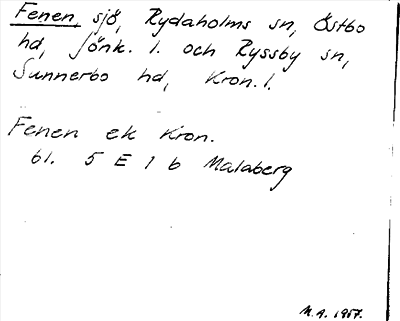 Fenen, sjö, Rydaholms sn, Östbo
hd, Jönk. l. och Ryssby sn,
Sunnerbo hd, Kron. l.
Fenen ek Kron.
bl. 5 E 1 b Malaberg
M.A. 1957.